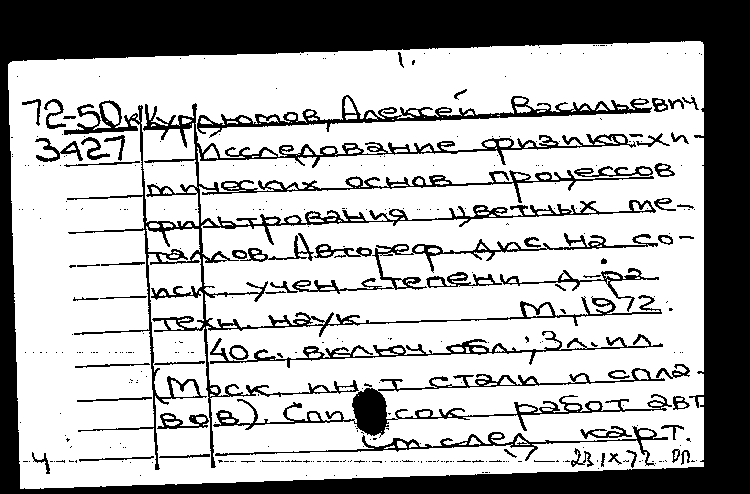 1.
72-50к Курдюмов, Алексей Васильевич.
3427 Исследование физико-хи-
мических основ процессов
фильтрования цветных ме-
таллов. Автореф. дис. на со-
иск. учен. степени д-ра
техн. наук. М., 1972.
40 с., включ. обл.; 3 л. ил.
(Моск. ин-т стали и спла-
вов). Список работ авт
См. след. карт.
4 23 IX 72